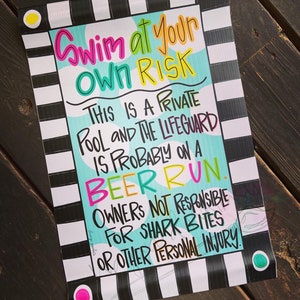 Swim at Your
OWN RISK
THIS IS A PRIVATE
POOL AND THE LIFEGUARD
IS PROBABLY ON A
BEER RUN.
OWNERS NOT RESPONSIBLE
FOR SHARK BITES
OR OTHER PERSONAL INJURY.